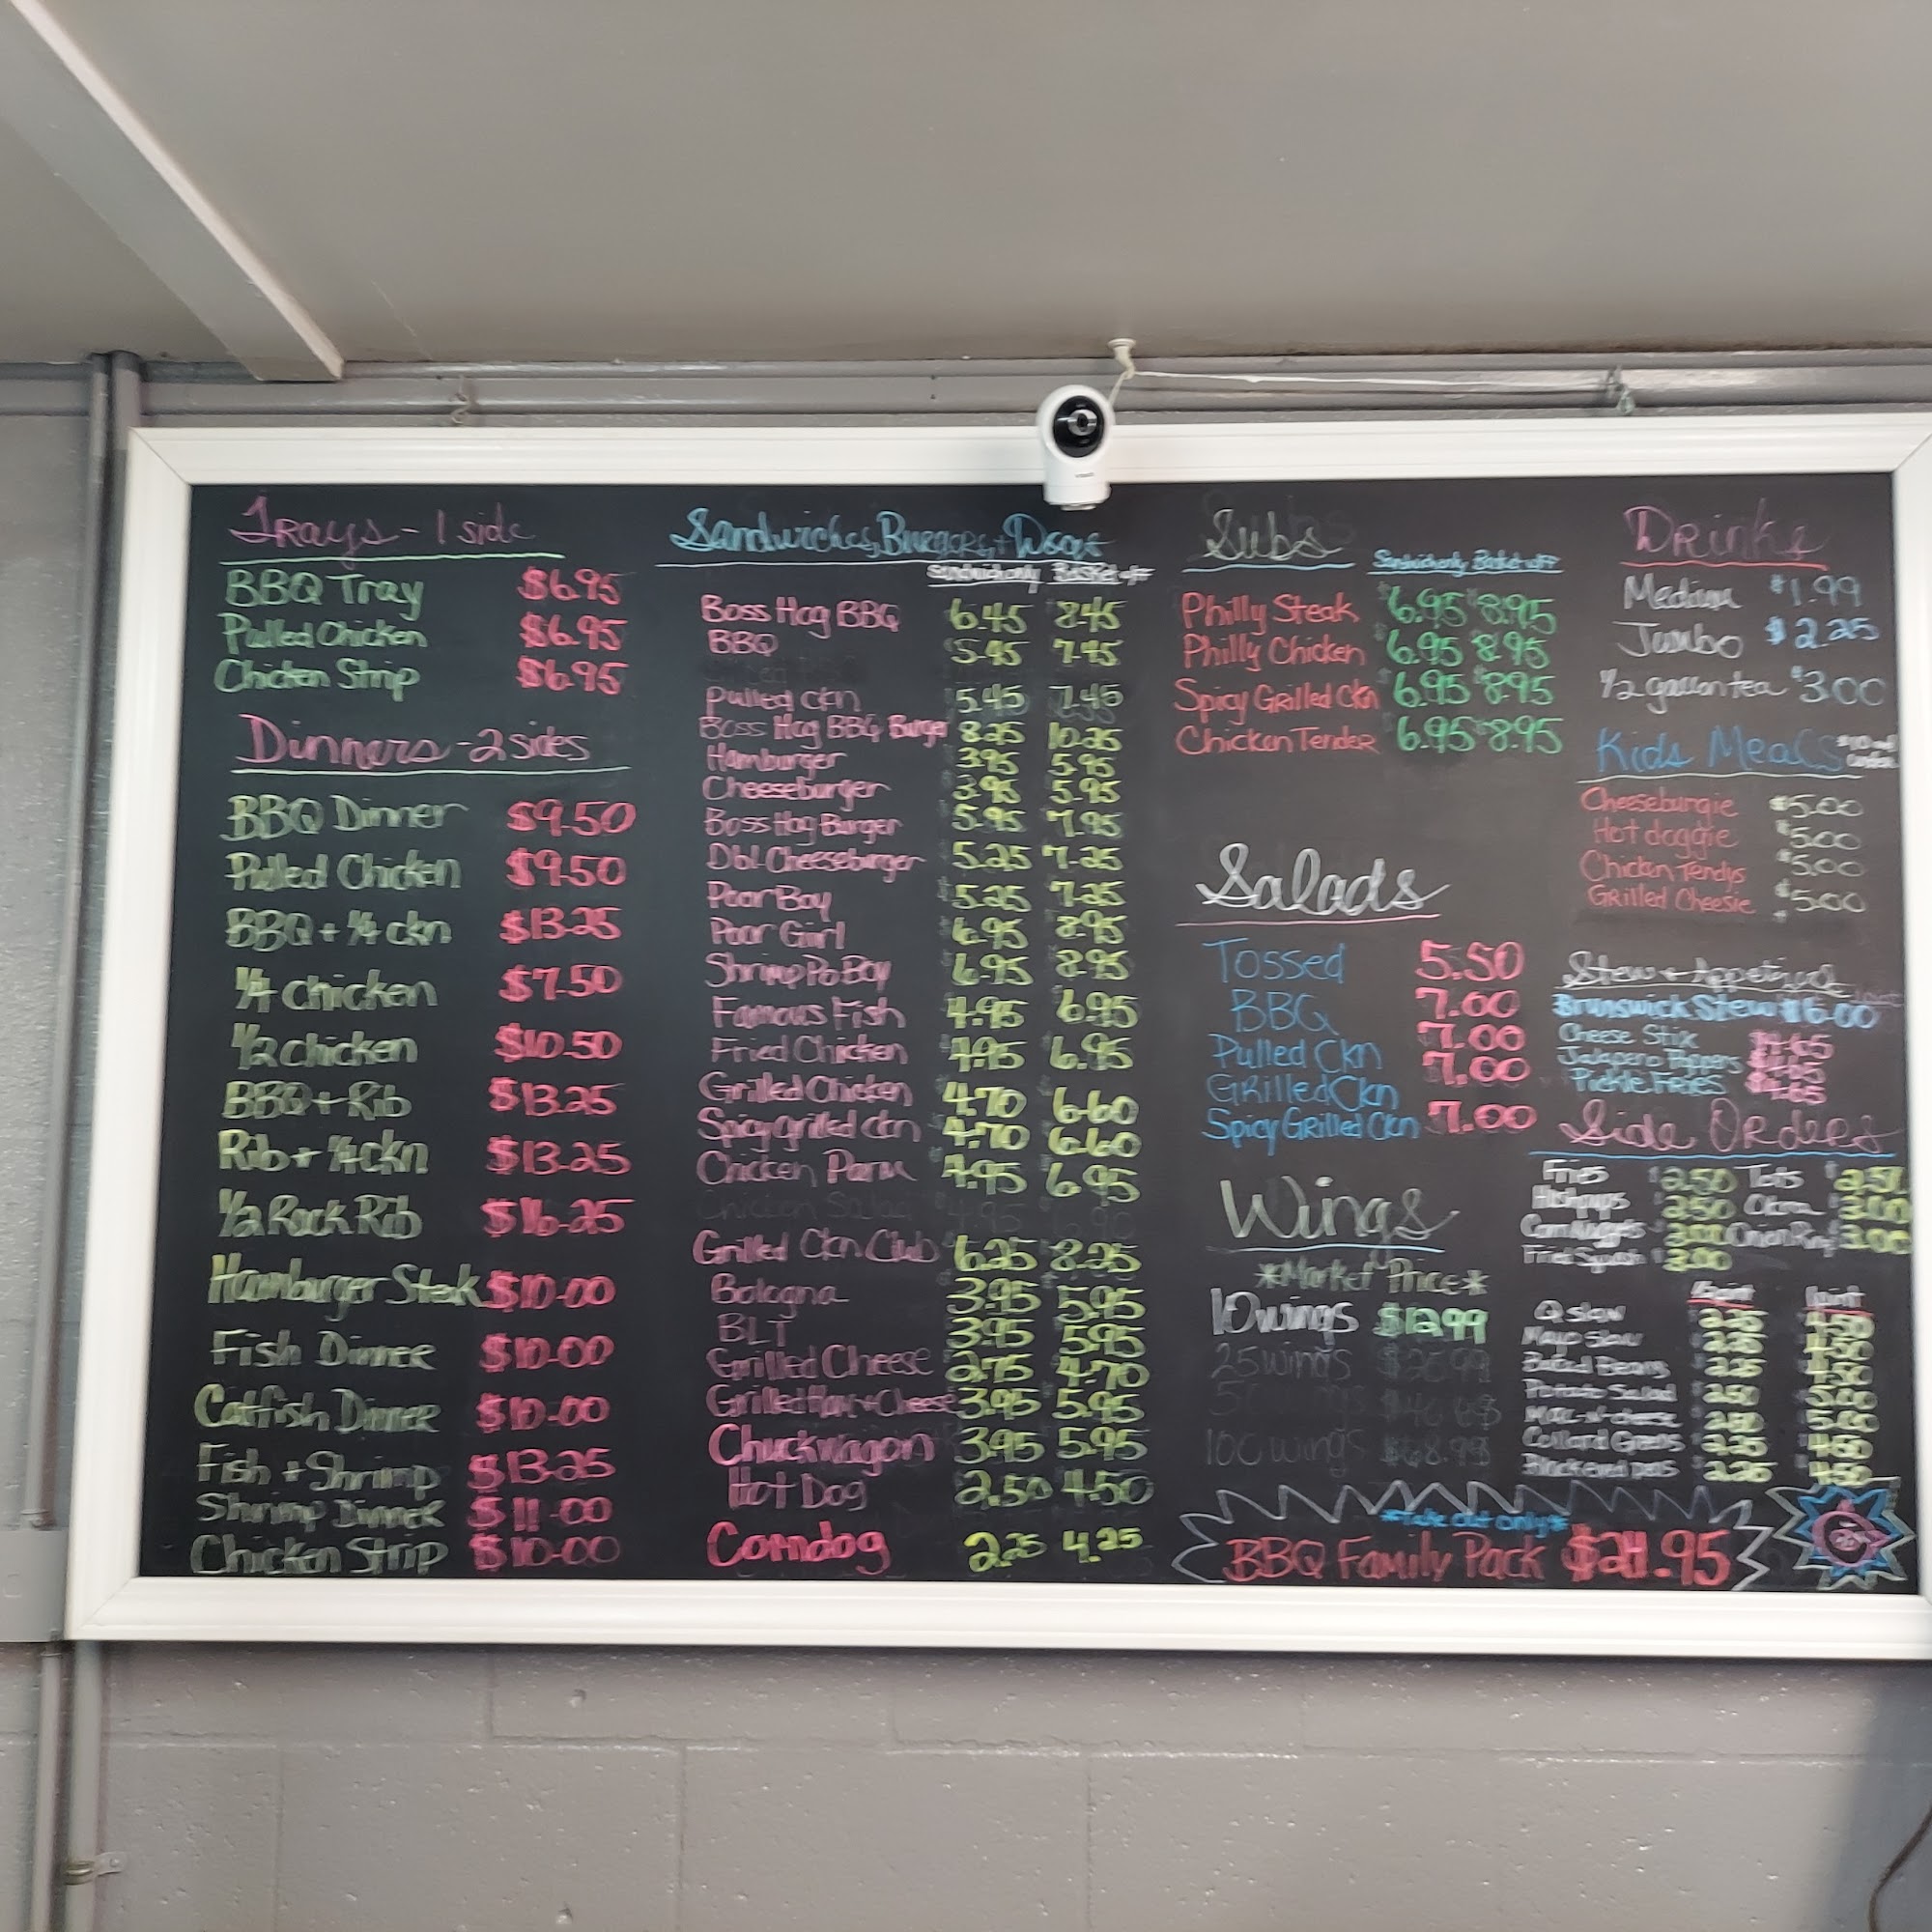 Trays - 1 side
BBQ Tray $6.95
Pulled Chicken $6.95
Chicken Strip $6.95
Dinners - 2 sides
BBQ Dinner $9.50
Pulled Chicken $9.50
BBQ + 1/4 ckn $13.25
1/4 chicken $7.50
1/2 chicken $10.50
BBQ + Rib $13.25
Rib + 1/4 ckn $13.25
1/2 Rack Rib $16.25
Hamburger Steak $10.00
Fish Dinner $10.00
Catfish Dinner $10.00
Fish + Shrimp $13.25
Shrimp Dinner $11.00
Chicken Strip $10.00
Sandwiches, Burgers, + Dogs
Sandwich only Basket w/ff
Boss Hog BBQ 6.45 8.45
BBQ 5.45 7.45
Pulled ckn 5.45 7.45
Boss Hog BBQ Burger 8.25 10.25
Hamburger 3.95 5.95
Cheeseburger 3.95 5.95
Boss Hog Burger 5.95 7.95
Dbl Cheeseburger 5.25 7.25
Poor Boy 5.25 7.25
Poor Girl 6.95 8.95
Shrimp Po Boy 6.95 8.95
Famous Fish 4.95 6.95
Fried Chicken 4.95 6.95
Grilled Chicken 4.70 6.60
Spicy grilled ckn 4.70 6.60
Chicken Parm 4.95 6.95
Chicken Salad 4.95 6.90
Grilled Ckn Club 6.25 8.25
Bologna 3.95 5.95
BLT 3.95 5.95
Grilled Cheese 2.75 4.70
Grilled Ham + Cheese 3.95 5.95
Chuckwagon 3.95 5.95
Hot Dog 2.50 4.50
Corndog 2.25 4.25
Subs
Sandwich only Basket w/ff
Philly Steak $6.95 $8.95
Philly Chicken $6.95 8.95
Spicy Grilled Ckn $6.95 $8.95
Chicken Tender $6.95 $8.95
Salads
Tossed 5.50
BBQ 7.00
Pulled Ckn 7.00
Grilled Ckn 7.00
Spicy Grilled Ckn 7.00
Wings
*Market Price*
10 wings $12.99
25 wings
100 wings $68.99
Drinks
Medium $1.99
Jumbo $2.25
1/2 gallon tea $3.00
Kids Meals
Cheeseburgie $5.00
Hot doggie $5.00
Chicken Tendys $5.00
Grilled Cheesie $5.00
Stew + Appetizers
Brunswick Stew $6.00
Cheese Stix $4.65
Jalapeno Poppers $4.65
Pickle Fries $4.65
Side Orders
Fries $2.50 Tots $2.50
Hushpups 2.50 Okra 3.00
Corn Nuggets 3.00 Onion Rings 3.00
Fried Squash 3.00
Q slaw
Mayo slaw
Baked Beans
Potato Salad
Mac-n-cheese
Collard Greens
Blackeyed peas
*Take out only*
BBQ Family Pack